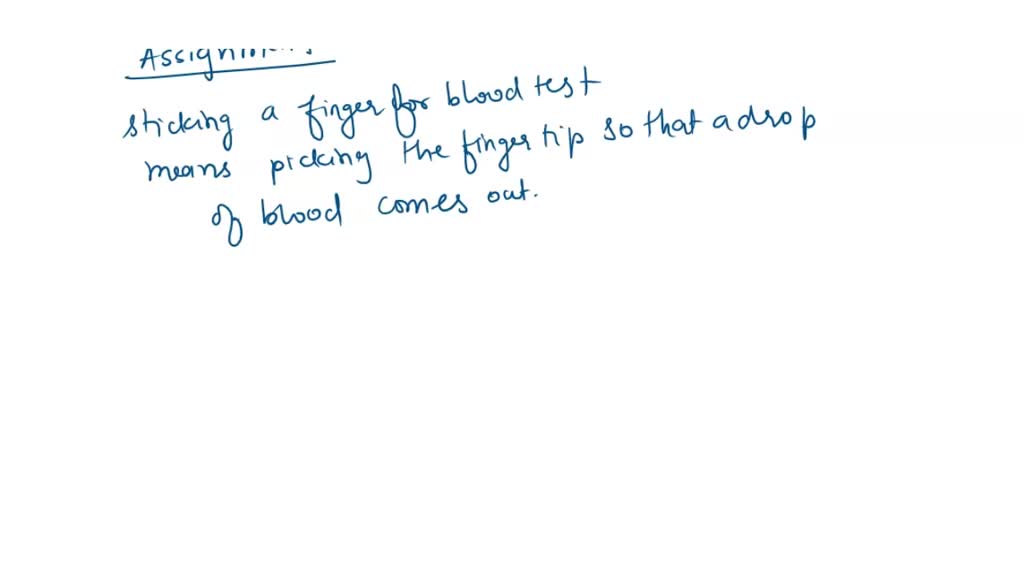 sticking a finger for blood test
means picking the finger tip so that a drop
of blood comes out.